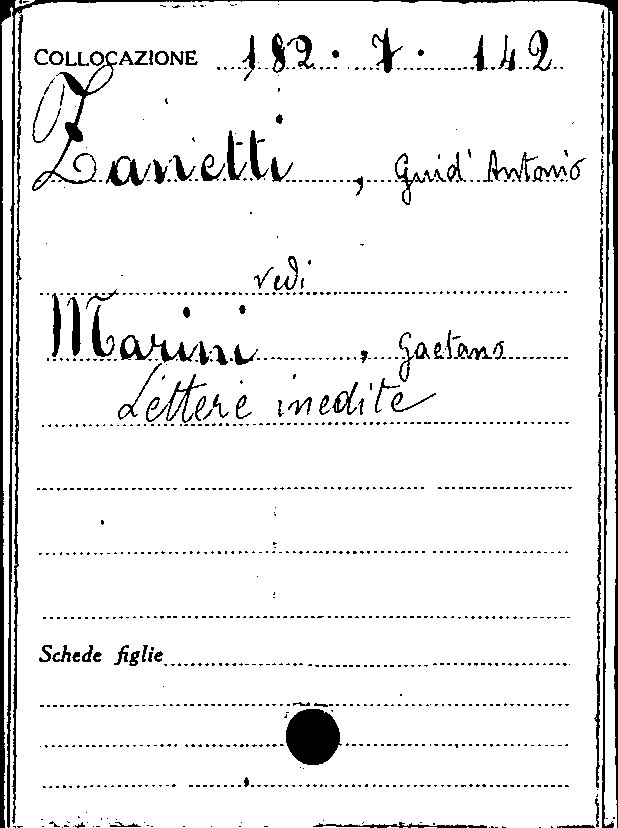 COLLOCAZIONE 182. 7. 142
Zanetti, Guid' Antonio
vedi
Marini, Gaetano
Lettere inedite
Schede figlie